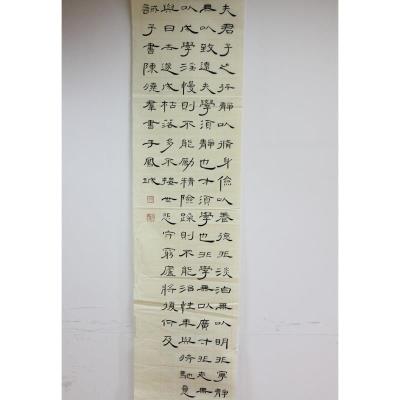 夫君子之行靜以脩身儉以養德非淡泊無以明非寧靜
無以致遠夫學須靜也才須學也非學無以廣才非志無
以成學淫慢則不能勵精險躁則不能治性年與時馳意
與日去遂成枯落多不接世悲守窮廬將復何及
誡子書陳羣書于鳳城